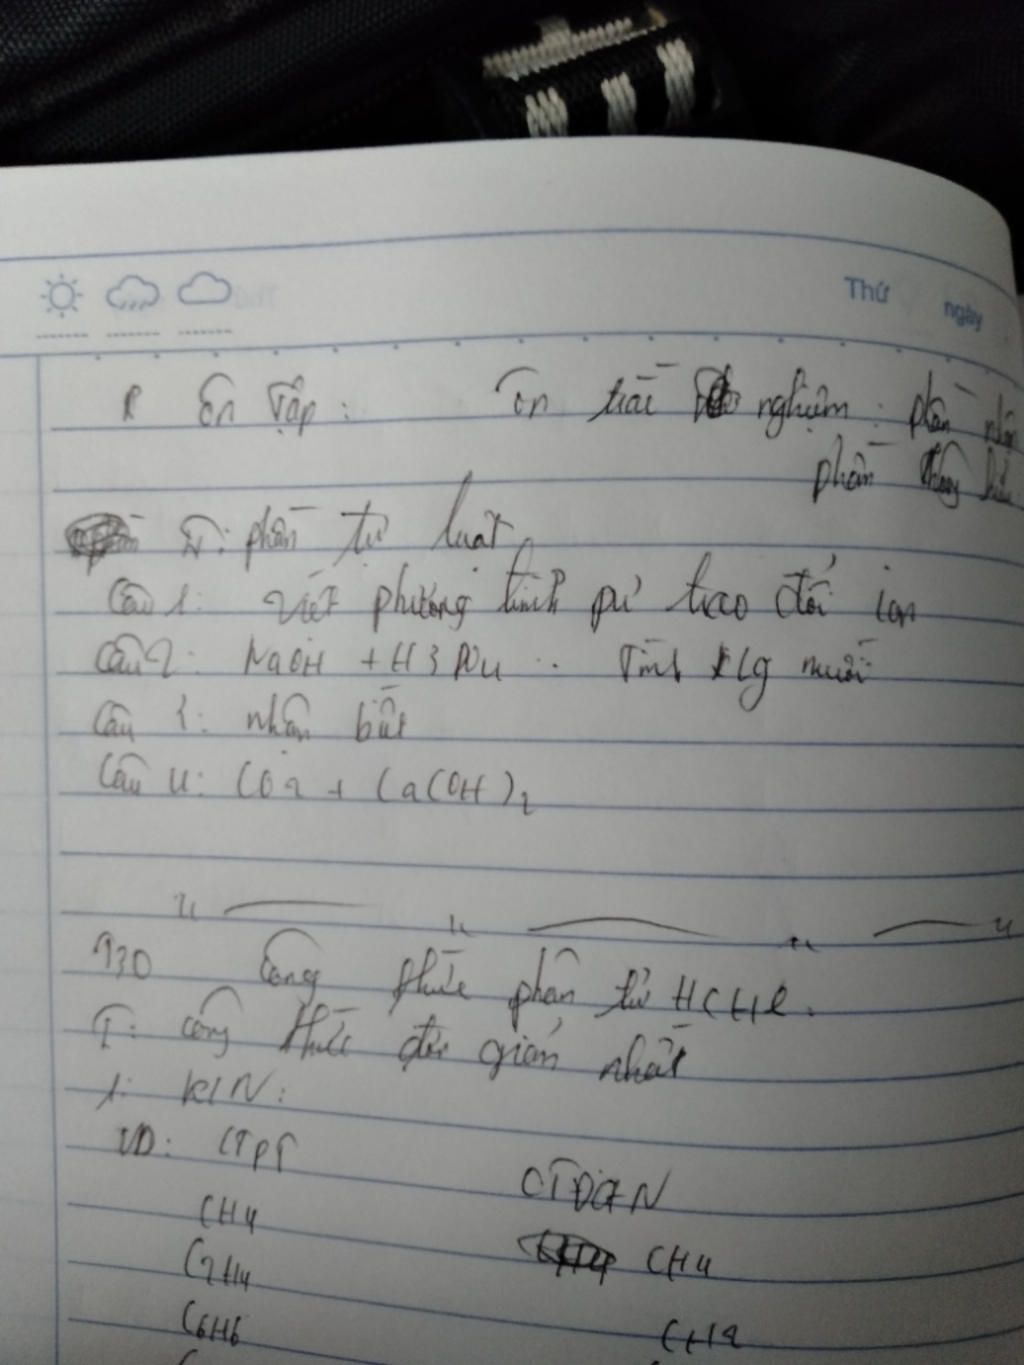 Thứ ngày
Ôn tập: Ôn trắc nghiệm: phần
phần
II: phần tự luật
Câu 1: viết phương trình pư trao đổi ion
Câu 2: NaOH + H3PO4 .. Tính klg muối
Câu 3: nhận bít
Câu 4: CO2 + Ca(OH)2
Công thức phân tử HCHC.
I: công thức đơn giản nhất
1: K/N:
VD: CTPT CTĐGN
CH4 CH4
C2H4 CH2
C6H6